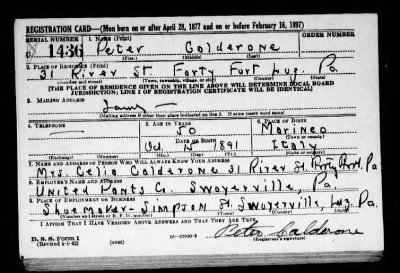 REGISTRATION CARD—(Men born on or after April 28, 1877 and on or before February 16, 1897)
SERIAL NUMBER 1. NAME (Print) ORDER NUMBER
U 1436 Peter Calderone
(First) (Middle) (Last)
2. PLACE OF RESIDENCE (Print)
31 River St. Forty Fort Luz. Pa
(Number and street) (Town, township, village, or city) (County) (State)
[THE PLACE OF RESIDENCE GIVEN ON THE LINE ABOVE WILL DETERMINE LOCAL BOARD
JURISDICTION; LINE 2 OF REGISTRATION CERTIFICATE WILL BE IDENTICAL]
3. MAILING ADDRESS
Same —
[Mailing address if other than place indicated on line 2. If same insert word same]
4. TELEPHONE 5. AGE IN YEARS 6. PLACE OF BIRTH
50 Marineo
DATE OF BIRTH (Town or county)
Oct 15 1891 Italy
(Exchange) (Number) (Mo.) (Day) (Yr.) (State or country)
7. NAME AND ADDRESS OF PERSON WHO WILL ALWAYS KNOW YOUR ADDRESS
Mrs. Celia Calderone 31 River St. Forty Fort, Pa
8. EMPLOYER'S NAME AND ADDRESS
United Pants Co Swoyerville, Pa.
9. PLACE OF EMPLOYMENT OR BUSINESS
Shoemaker- Simpson St. Swoyerville, Luz. Pa.
(Number and street or R. F. D. number) (Town) (County) (State)
I AFFIRM THAT I HAVE VERIFIED ABOVE ANSWERS AND THAT THEY ARE TRUE.
Peter Calderone
D. S. S. Form 1
(Revised 4-1-42) (over) (Registrant's signature)